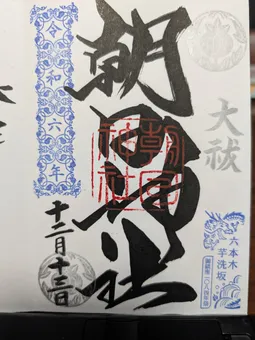 大祓
朝日神社
朝日神社
六本木
芋洗坂
令和六年
十二月十三日